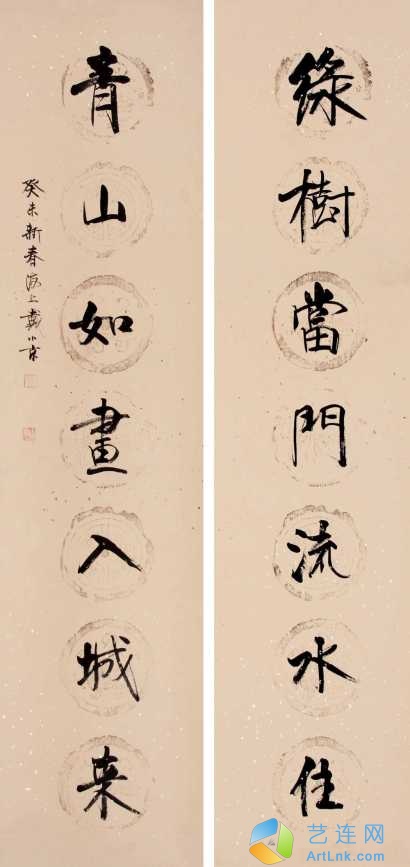 綠樹當門流水住
青山如畫入城来
癸未新春海上戴小京
艺连网
ArtLnk.com